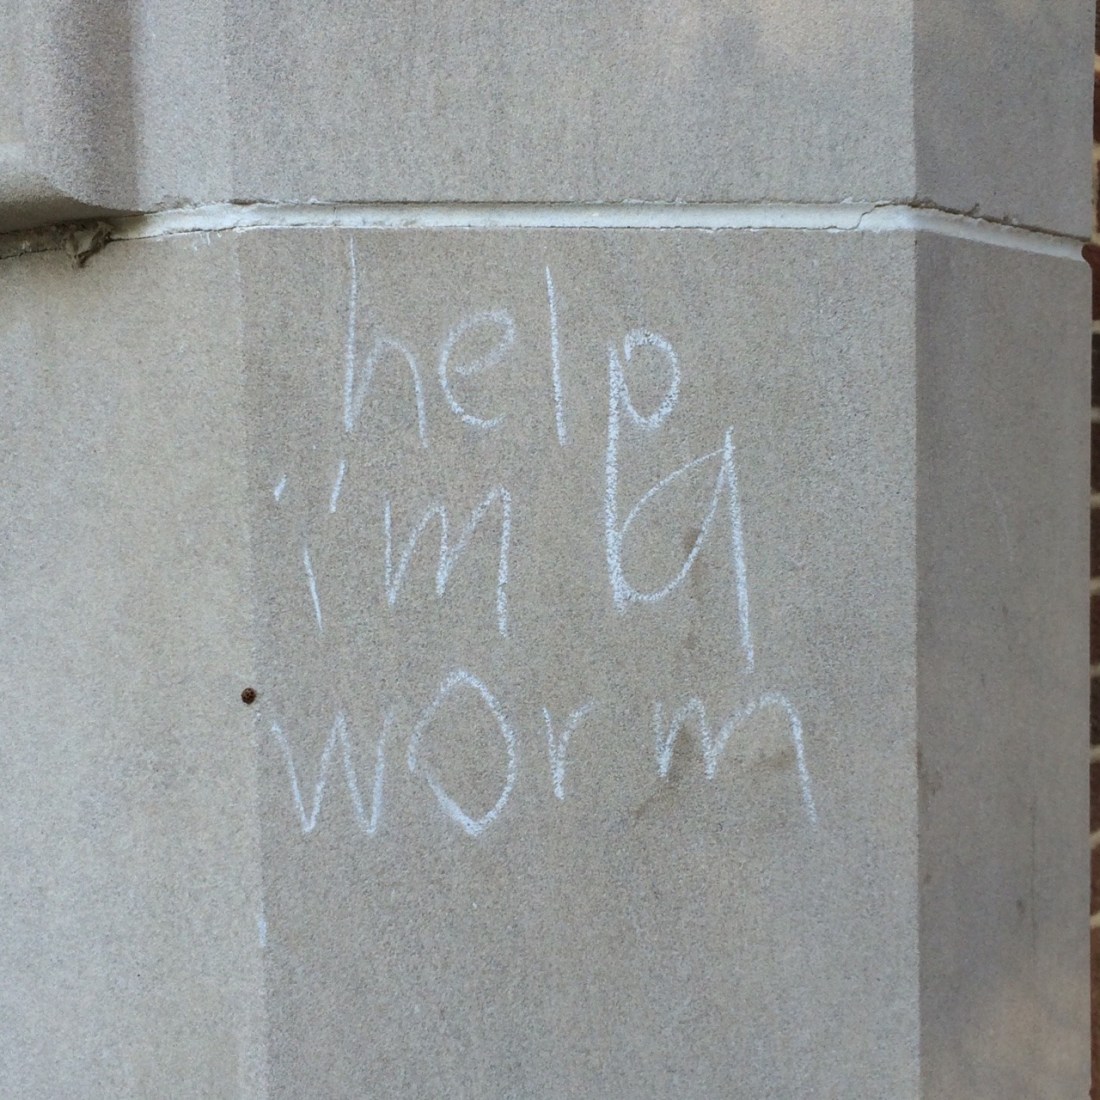 help
i'm a
worm